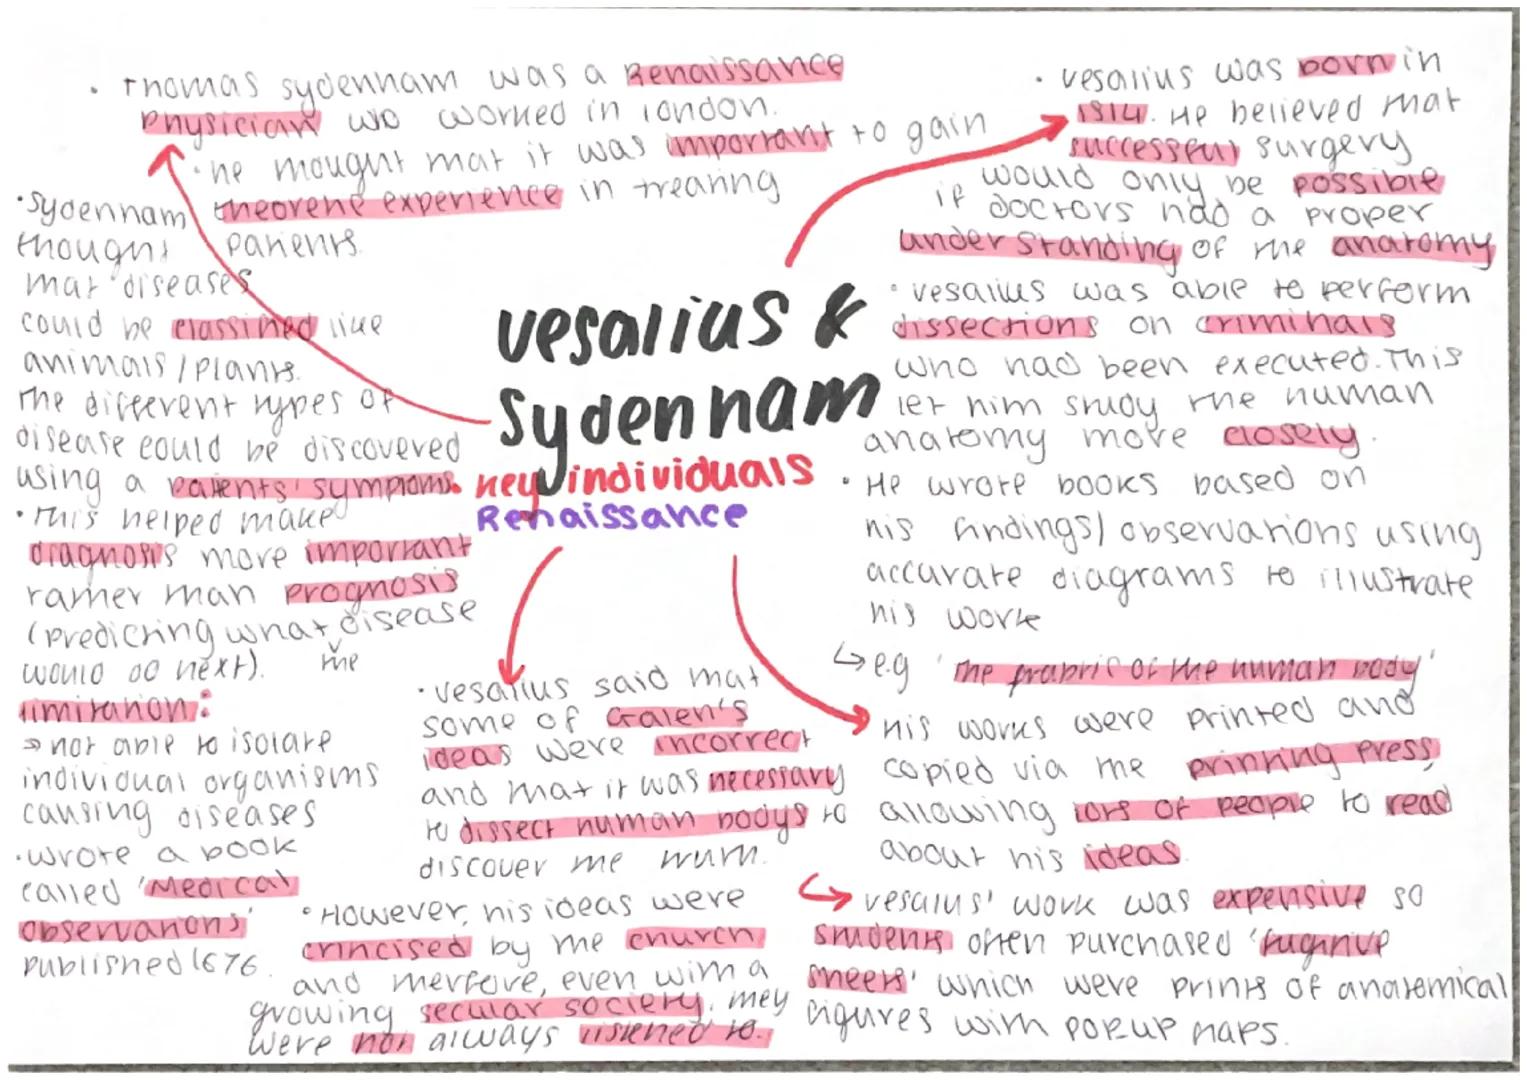 • Thomas Sydenham was a Renaissance
physician wo worked in London.
• he thought that it was important to gain
theorene experience in treating
patients.
• Sydenham
thought
that diseases
could be classified like
animals/plants.
The different types of
disease could be discovered
using a patients' symptoms.
• This helped make
diagnosis more important
rather than prognosis
(predicting what the disease
would do next).
limitation:
⇒ not able to isolate
individual organisms
causing diseases
• wrote a book
called 'Medical
observations'
published 1676.
vesalius &
Sydenham
key individuals
Renaissance
• vesalius was born in
1514. He believed that
successful surgery
would only be possible
if doctors had a proper
understanding of the anatomy
• vesalius was able to perform
dissections on criminals
who had been executed. This
let him study the human
anatomy more closely.
• He wrote books based on
his findings/observations using
accurate diagrams to illustrate
his work
↳ e.g 'the frabric of the human body'
his works were printed and
copied via the printing press,
allowing lots of people to read
about his ideas.
↳ vesalius' work was expensive so
students often purchased 'fugitive
sheets' which were prints of anatomical
figures with pop-up flaps.
• vesalius said that
some of Galen's
ideas were incorrect
and that it was necessary
to dissect human bodys to
discover the truth.
• However, his ideas were
criticised by the church
and therefore, even with a
growing secular society, they
were not always listened to.